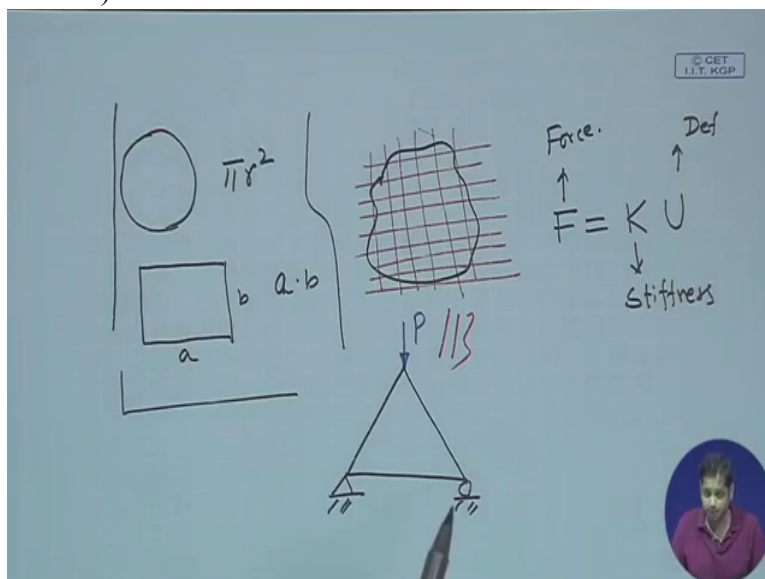 © CET
I.I.T. KGP
πr²
a·b
b
a
Force.
Def
F = K U
Stiffness
P